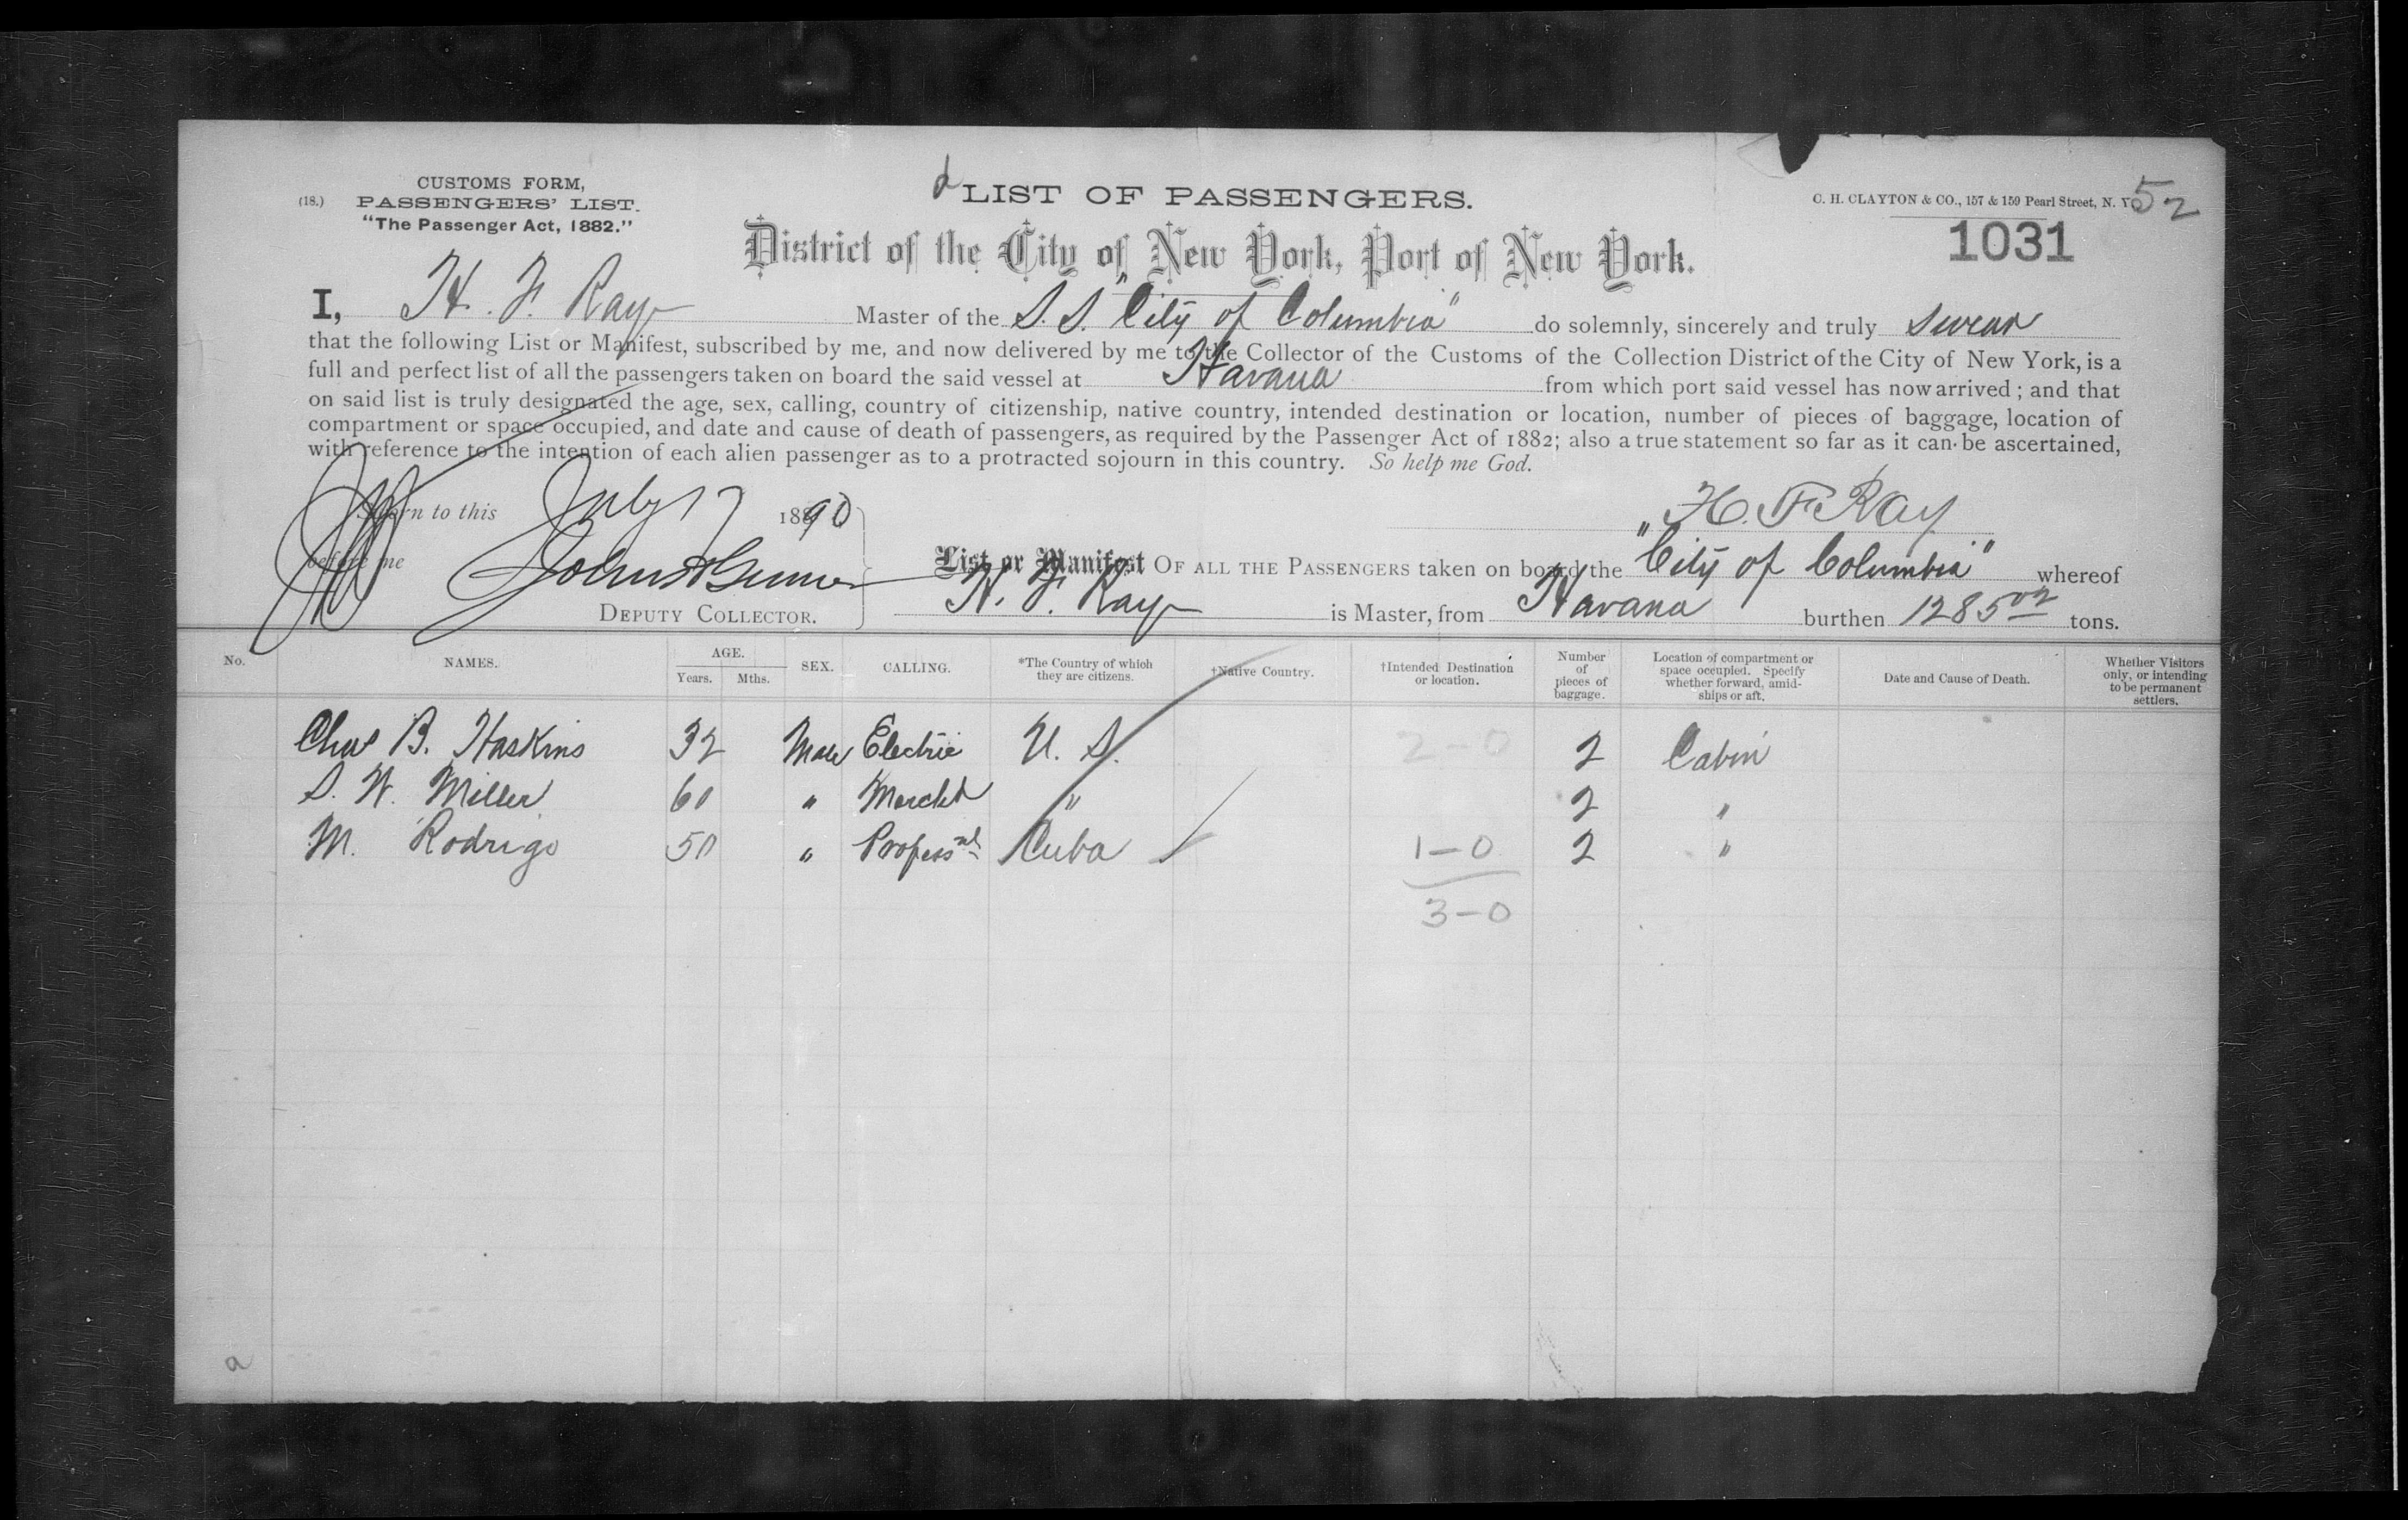 CUSTOMS FORM,
(18.) PASSENGERS' LIST.
"The Passenger Act, 1882."
LIST OF PASSENGERS.
C. H. CLAYTON & CO., 157 & 159 Pearl Street, N. Y.
52
1031
District of the City of New York, Port of New York.
I, H. F. Ray Master of the S. S. "City of Columbia" do solemnly, sincerely and truly swear
that the following List or Manifest, subscribed by me, and now delivered by me to the Collector of the Customs of the Collection District of the City of New York, is a
full and perfect list of all the passengers taken on board the said vessel at Havana from which port said vessel has now arrived; and that
on said list is truly designated the age, sex, calling, country of citizenship, native country, intended destination or location, number of pieces of baggage, location of
compartment or space occupied, and date and cause of death of passengers, as required by the Passenger Act of 1882; also a true statement so far as it can be ascertained,
with reference to the intention of each alien passenger as to a protracted sojourn in this country. So help me God.
Sworn to this July 17 1890
H. F. Ray
before me
List or Manifest OF ALL THE PASSENGERS taken on board the "City of Columbia" whereof
DEPUTY COLLECTOR.
H. F. Ray is Master, from Havana burthen 1285 02 tons.
No. NAMES. AGE. Years. Mths. SEX. CALLING. *The Country of which they are citizens. †Native Country. †Intended Destination or location. Number of pieces of baggage. Location of compartment or space occupied. Specify whether forward, amidships or aft. Date and Cause of Death. Whether Visitors only, or intending to be permanent settlers.
Chas B. Haskins 32 Male Electric U. S. 2-0 2 Cabin
S. W. Miller 60 " Mercht " 2 "
M. Rodrigo 50 " Professnl Cuba 1-0 2 "
3-0
a